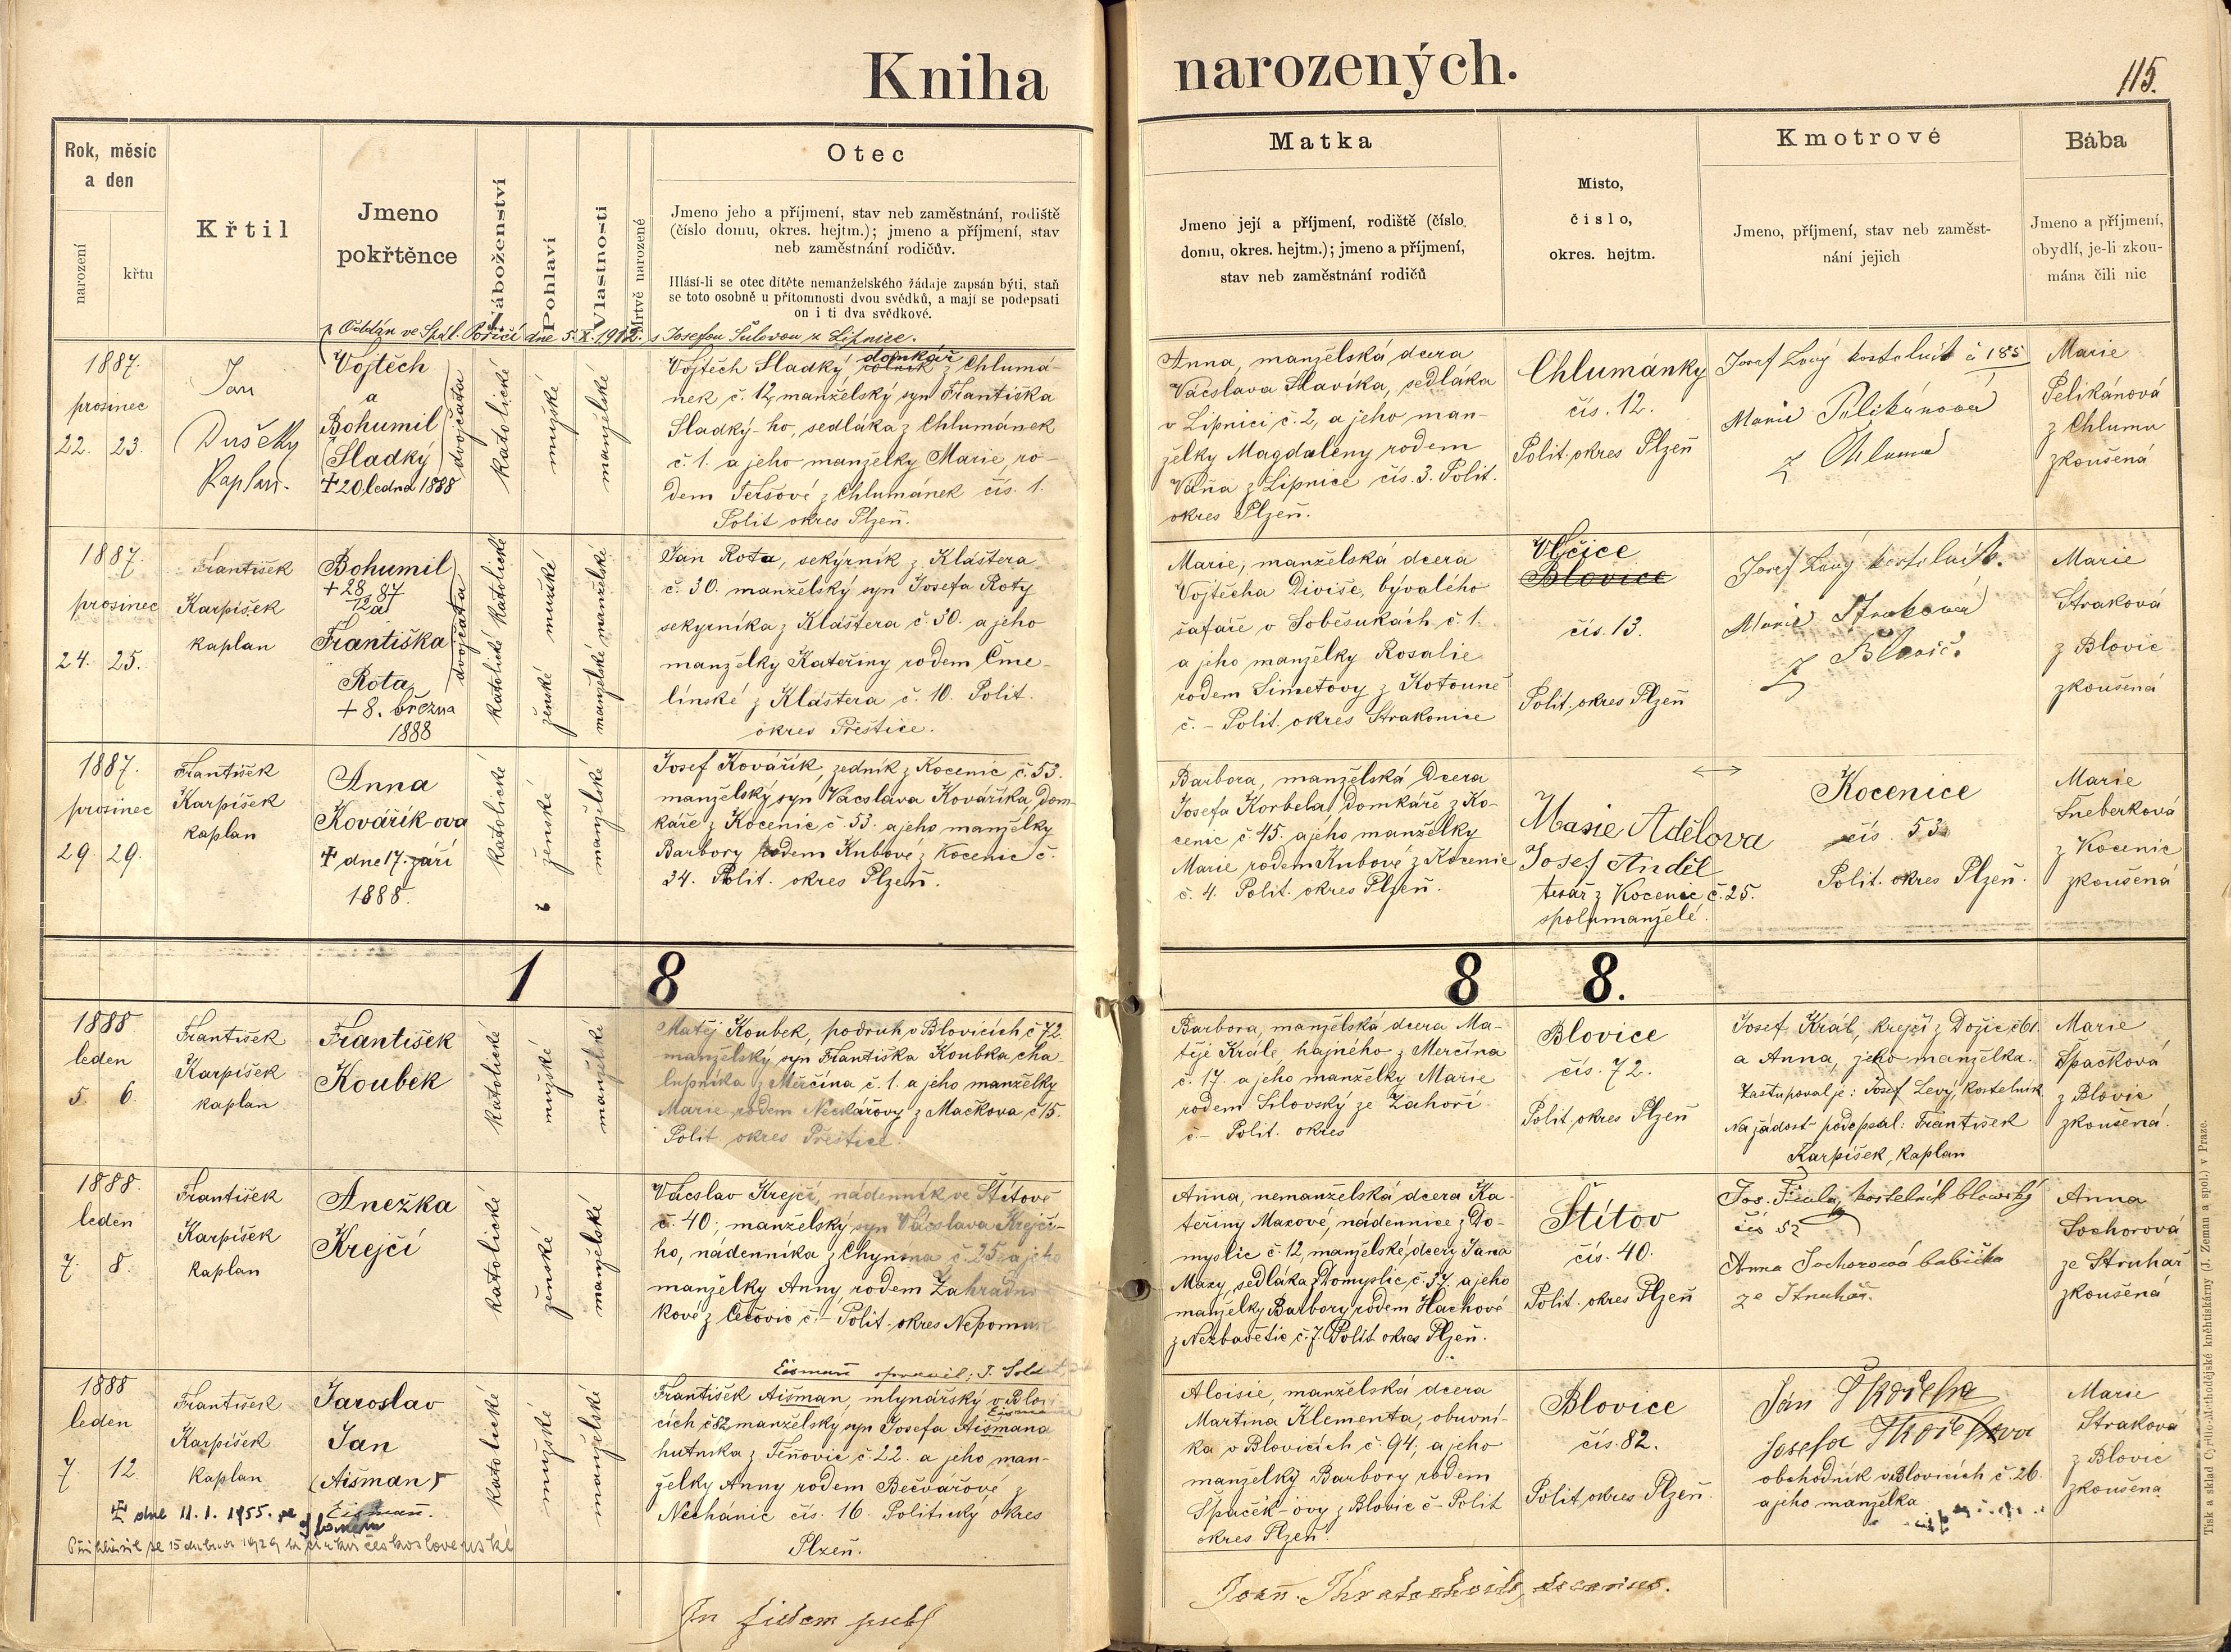 Kniha narozených.
115.
Rok, měsíc
a den
narození
křtu
Křtil
Jmeno
pokřtěnce
Náboženství
Pohlaví
Vlastnosti
Mrtvě narozené
Otec
Jmeno jeho a příjmení, stav neb zaměstnání, rodiště
(číslo domu, okres. hejtm.); jmeno a příjmení, stav
neb zaměstnání rodičův.
Hlásí-li se otec dítěte nemanželského žádaje zapsán býti, staň
se toto osobně u přítomnosti dvou svědků, a mají se podepsati
on i ti dva svědkové.
Matka
Jmeno její a příjmení, rodiště (číslo
domu, okres. hejtm.); jmeno a příjmení,
stav neb zaměstnání rodičů
Místo,
číslo,
okres. hejtm.
Kmotrové
Jmeno, příjmení, stav neb zaměst-
nání jejich
Bába
Jmeno a příjmení,
obydlí, je-li zkou-
mána čili nic
Oddán ve Spál. Poříčí dne 5. X. 1912. s Josefou Šulovou z Lipnice.
1887.
prosinec
22. 23.
Jan
Dušek
Kaplan.
Vojtěch
a
Bohumil
Sladký
dvojčata
✝ 20. ledna 1888
katolické
mužské
manželské
Vojtěch Sladký rolník domkář z Chlumá-
nek č. 12, manželský syn Františka
Sladký-ho, sedláka z Chlumánek
č. 1. a jeho manželky Marie, ro-
dem Teršové z Chlumánek čís. 1.
Polit okres Plzeň.
Anna, manželská dcera
Václava Slavíka, sedláka
v Lipnici č. 2, a jeho man-
želky Magdaleny rodem
Váňa z Lipnice čís. 3. Polit.
okres Plzeň.
Chlumánky
čís. 12.
Polit. okres Plzeň
Josef Levý kostelník č 185
Marie Pelikánová
z Chlumu
Marie
Pelikánová
z Chlumu
zkoušená
1887.
prosinec
24. 25.
František
Karpíšek
kaplan
Bohumil
+ 28/12 87
a
Františka
Rota
dvojčata
+ 8. března
1888
katolické katolické
ženské mužské
manželské manželské
Jan Rota, sekyrník z Kláštera
č. 30. manželský syn Josefa Roty
sekyrníka z Kláštera č. 30. a jeho
manželky Kateřiny rodem Čme-
línské z Kláštera č. 10. Polit.
okres Přeštice.
Marie, manželská dcera
Vojtěcha Diviše, bývalého
šafáře v Soběsukách č. 1.
a jeho manželky Rosalie
rodem Simetovy z Kotouně
č. – Polit. okres Strakonice
Vlčice
Blovice
čís. 13.
Polit. okres Plzeň
Josef Levý kostelník.
Marie Straková
z Blovic.
Marie
Straková
z Blovic
zkoušená
1887.
prosinec
29. 29.
František
Karpíšek
kaplan
Anna
Kovářík-ova
✝ dne 17. září
1888.
katolické
ženské
manželské
Josef Kovářík, zedník z Kocenic č. 53.
manželský syn Vácslava Kováříka, dom-
káře z Kocenic č. 53. a jeho manželky
Barbory rodem Kubové z Kocenic č.
34. Polit. okres Plzeň.
Barbora, manželská dcera
Josefa Korbela, domkáře z Ko-
cenic č. 45. a jeho manželky
Marie rodem Kubové z Kocenic
č. 4. Polit. okres Plzeň.
Marie Adělova
Josef Anděl
tesař z Kocenic č. 25.
spolumanželé.
Kocenice
čís. 53
Polit. okres Plzeň.
Marie
Sneberková
z Kocenic
zkoušená
1 8 8 8.
1888
leden
5. 6.
František
Karpíšek
kaplan
František
Koubek
katolické
mužské
manželské
Matěj Koubek, podruh v Blovicích č 72.
manželský syn Františka Koubka cha-
lupníka z Měrčína č. 1. a jeho manželky
Marie rodem Neckářovy z Mačkova č 15.
Polit okres Přeštice.
Barbora, manželská dcera Ma-
těje Krále, hajného z Merčína
č. 17. a jeho manželky Marie
rodem Silovský ze Záhoří
č. – Polit. okres
Blovice
čís. 72.
Polit. okres Plzeň
Josef Král, krejčí z Dožic č 61.
a Anna, jeho manželka.
Zastupoval je: Josef Levý, kostelník
Na žádost podepsal: František
Karpíšek, kaplan
Marie
Špačková
z Blovic
zkoušená.
1888.
leden
7. 8.
František
Karpíšek
kaplan
Anežka
Krejčí
katolické
ženské
manželské
Václav Krejčí, nádenník ve Štítově
č. 40; manželský syn Vácslava Krejčí-
ho, nádenníka z Chynína č. 25. a jeho
manželky Anny, rodem Zahradní
kové z Čečovic č. – Polit. okres Nepomuk
Anna, nemanželská dcera Ka-
teřiny Macové, nádennice z Do-
myslic č. 12, manželské dcery Jana
Mazy, sedláka z Domyslic, č. 37. a jeho
manželky Barbory rodem Hachové
z Nezbavětic č. 7. Polit okres Plzeň.
Štítov
čís. 40.
Polit. okres Plzeň
Jos. Ficula, kostelník blowský
čís 52
Anna Sochorová babička
ze Struhař.
Anna
Sochorová
ze Struhař
zkoušená
1888
leden
7. 12.
František
Karpíšek
kaplan
Jaroslav
Jan
(Aišman)
Eisman.
✝ dne 11. 1. 1955.
Přihlásil se 15 dubna 1929 k církvi československé
katolické
mužské
manželské
Eisman opravil: J.
František Aišman, mlynářský v Blovi
cích č 82 manželský syn Josefa Aišmana
hutníka z Těňovic č. 22. a jeho man-
želky Anny rodem Bečvářové z
Nechánic čís. 16. Politický okres
Plzeň.
Aloisie, manželská dcera
Martina Klementa, obuvní-
ka v Blovicích č. 94, a jeho
manželky Barbory rodem
Špaček-ovy z Blovic č – Polit
okres Plzeň.
Blovice
čís. 82.
Polit. okres Plzeň.
Jan
Josefa
obchodník v Blovicích č. 26.
a jeho manželka
Marie
Straková
z Blovic
zkoušená
In fidem
Tisk a sklad Cyrillo-Methodějské knihtiskárny (J. Zeman a spol.) v Praze.